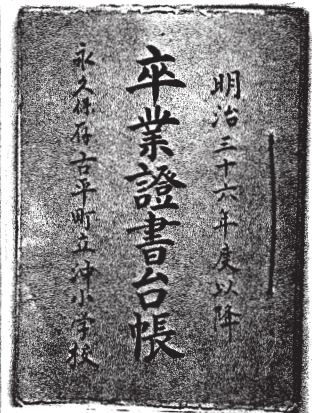 明治三十六年度以降
卒業證書台帳
永久保存古平町立沖小学校